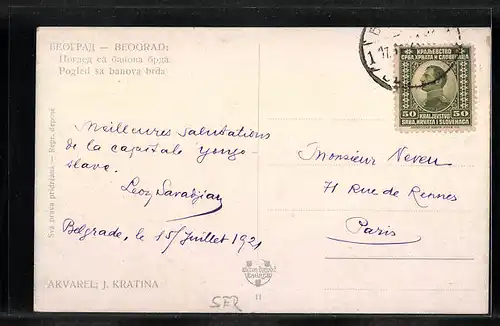 БЕОГРАД — BEOGRAD:
Поглед са банова брда.
Pogled sa banova brda
КРАЉЕВСТВО
СРБА, ХРВАТА И СЛОВЕНАЦА
50 50
KRALJEVSTVO
SRBA, HRVATA I SLOVENACA
Meilleures salutations
de la capitale yougo-
slave.
Belgrade, le 15 Juillet 1921
Monsieur Neveu
71 Rue de Rennes
Paris
Sva prava pridržana — Repr. déposé
AKVAREL; J. KRATINA
SFR
11